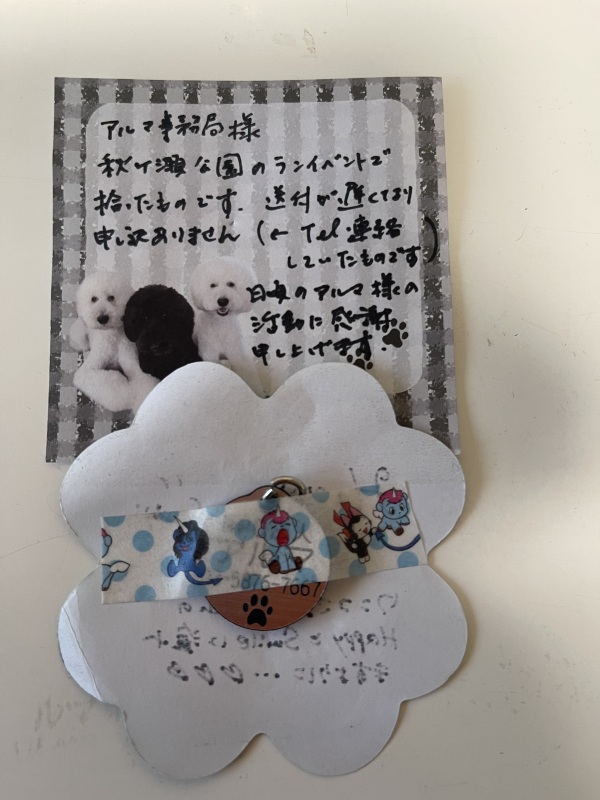 アルマ事務局様
秋ヶ瀬公園のランイベントで
拾ったものです. 送付が遅くなり
申し訳ありません (← Tel 連絡
していたものです)
日頃のアルマ様の
活動に感謝
申し上げます.
5876-7667
Happy と Smile に